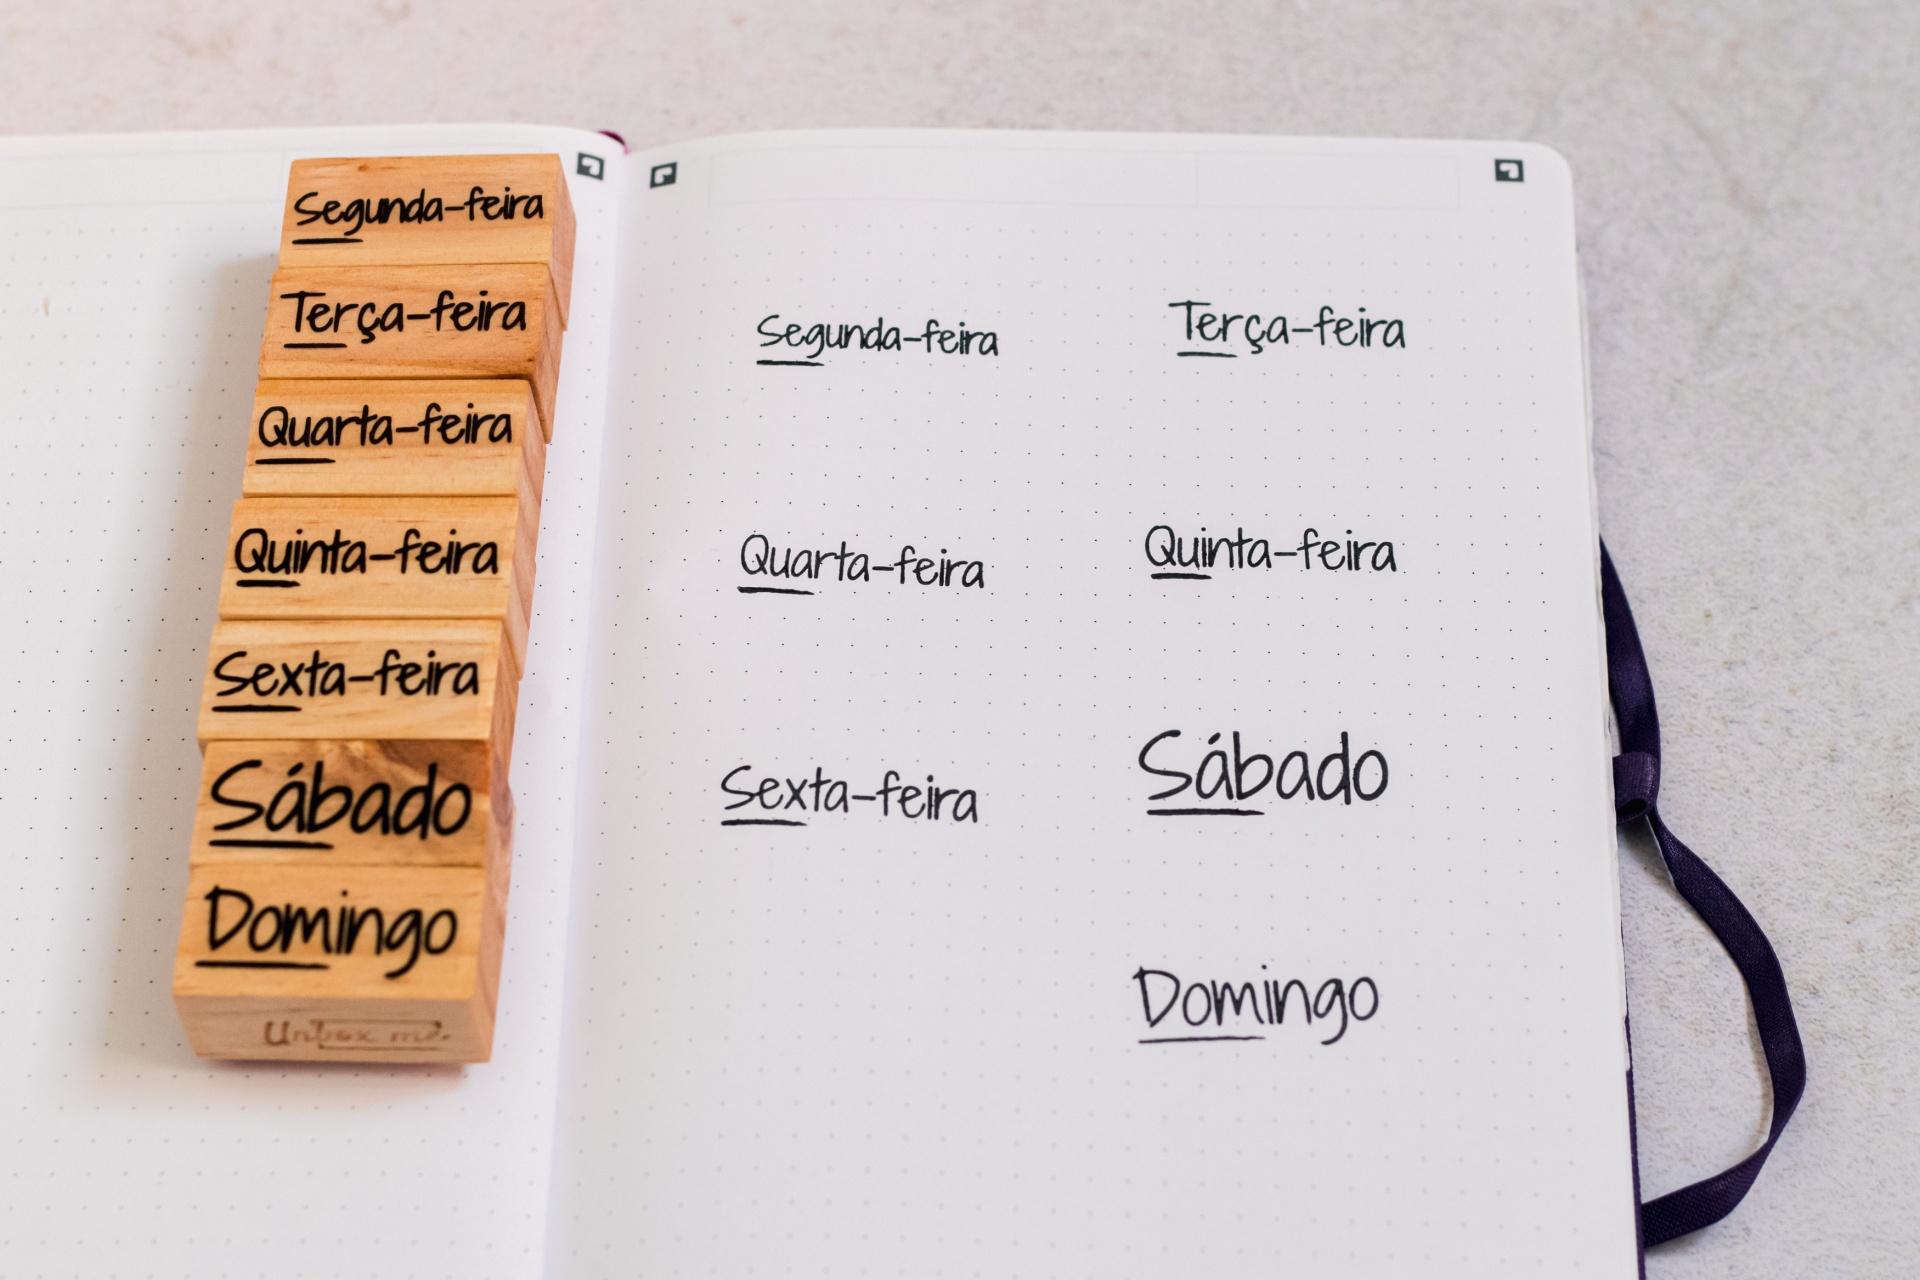 Segunda-feira
Terça-feira
Quarta-feira
Quinta-feira
Sexta-feira
Sábado
Domingo
Unbox me.
Segunda-feira
Terça-feira
Quarta-feira
Quinta-feira
Sexta-feira
Sábado
Domingo